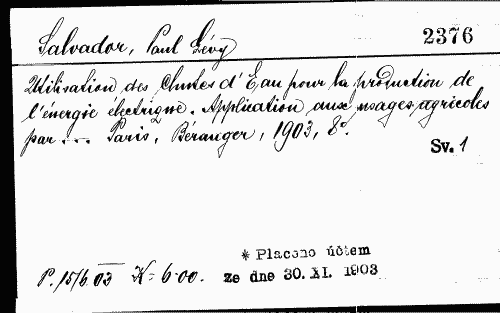 Salvador, Paul Lévy 2376
Utilisation des Chutes d'Eau pour la production de
l'énergie électrique. Application aux usages agricoles
par... Paris, Béranger, 1903, 8°.
Sv. 1
* Placeno účtem
P. 15/6 03 K = 6·00. ze dne 30. XI. 1903